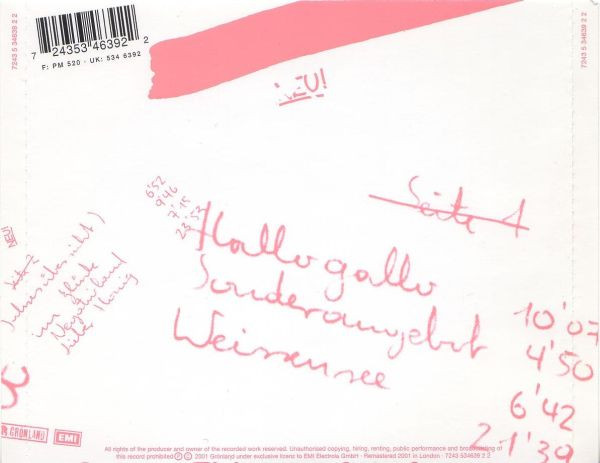 7243 5 34639 2 2
7243 5 34639 2 2
7 24353 46392 2
F: PM 520 · UK: 534 6392
NEU!
6'52
9'46
7'15
23'53
Seite 1
Hallogallo
Sonderangebot
Weissensee
10'07
4'50
6'42
21'39
NEU!
Seite 2
im Glück
Negativland
Lieber Honig
GRÖNLAND
EMI
All rights of the producer and owner of the recorded work reserved. Unauthorised copying, hiring, renting, public performance and broadcasting of
this record prohibited Ⓟ © 2001 Grönland under exclusive licence to EMI Electrola GmbH · Remastered 2001 in London · 7243 534639 2 2